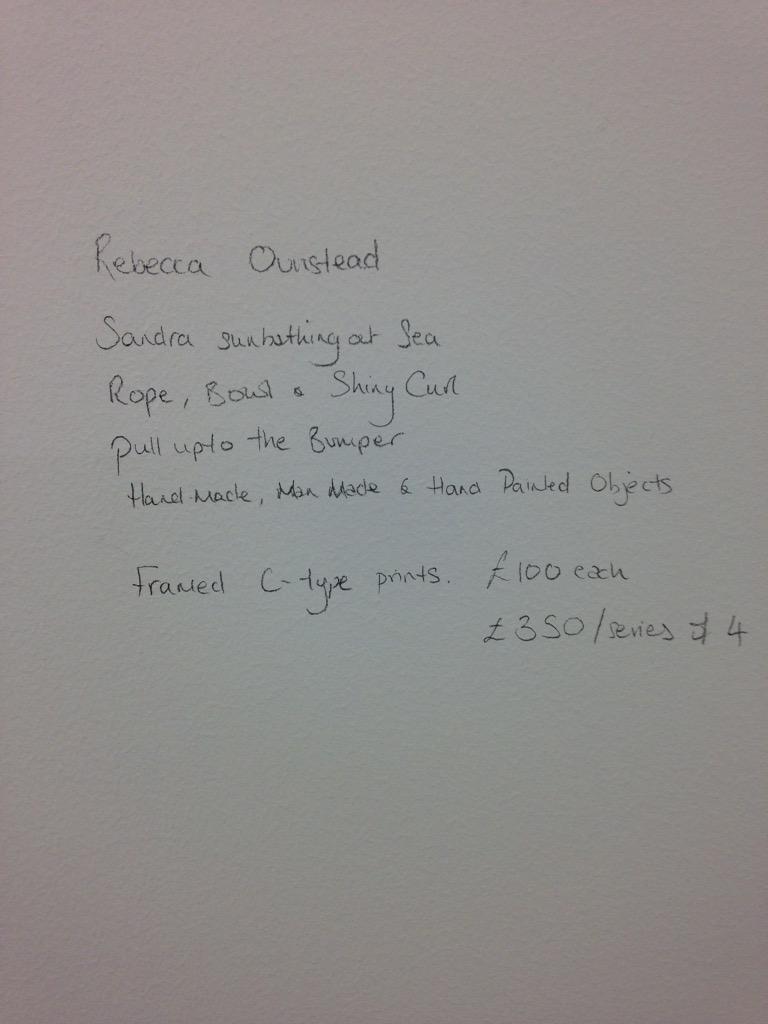 Rebecca Ounstead
Sandra sunbathing at Sea
Rope, Bowl & Shiny Curl
Pull up to the Bumper
Hand Made, Man Made & Hand Painted Objects
Framed C-type prints. £100 each
£350/series of 4